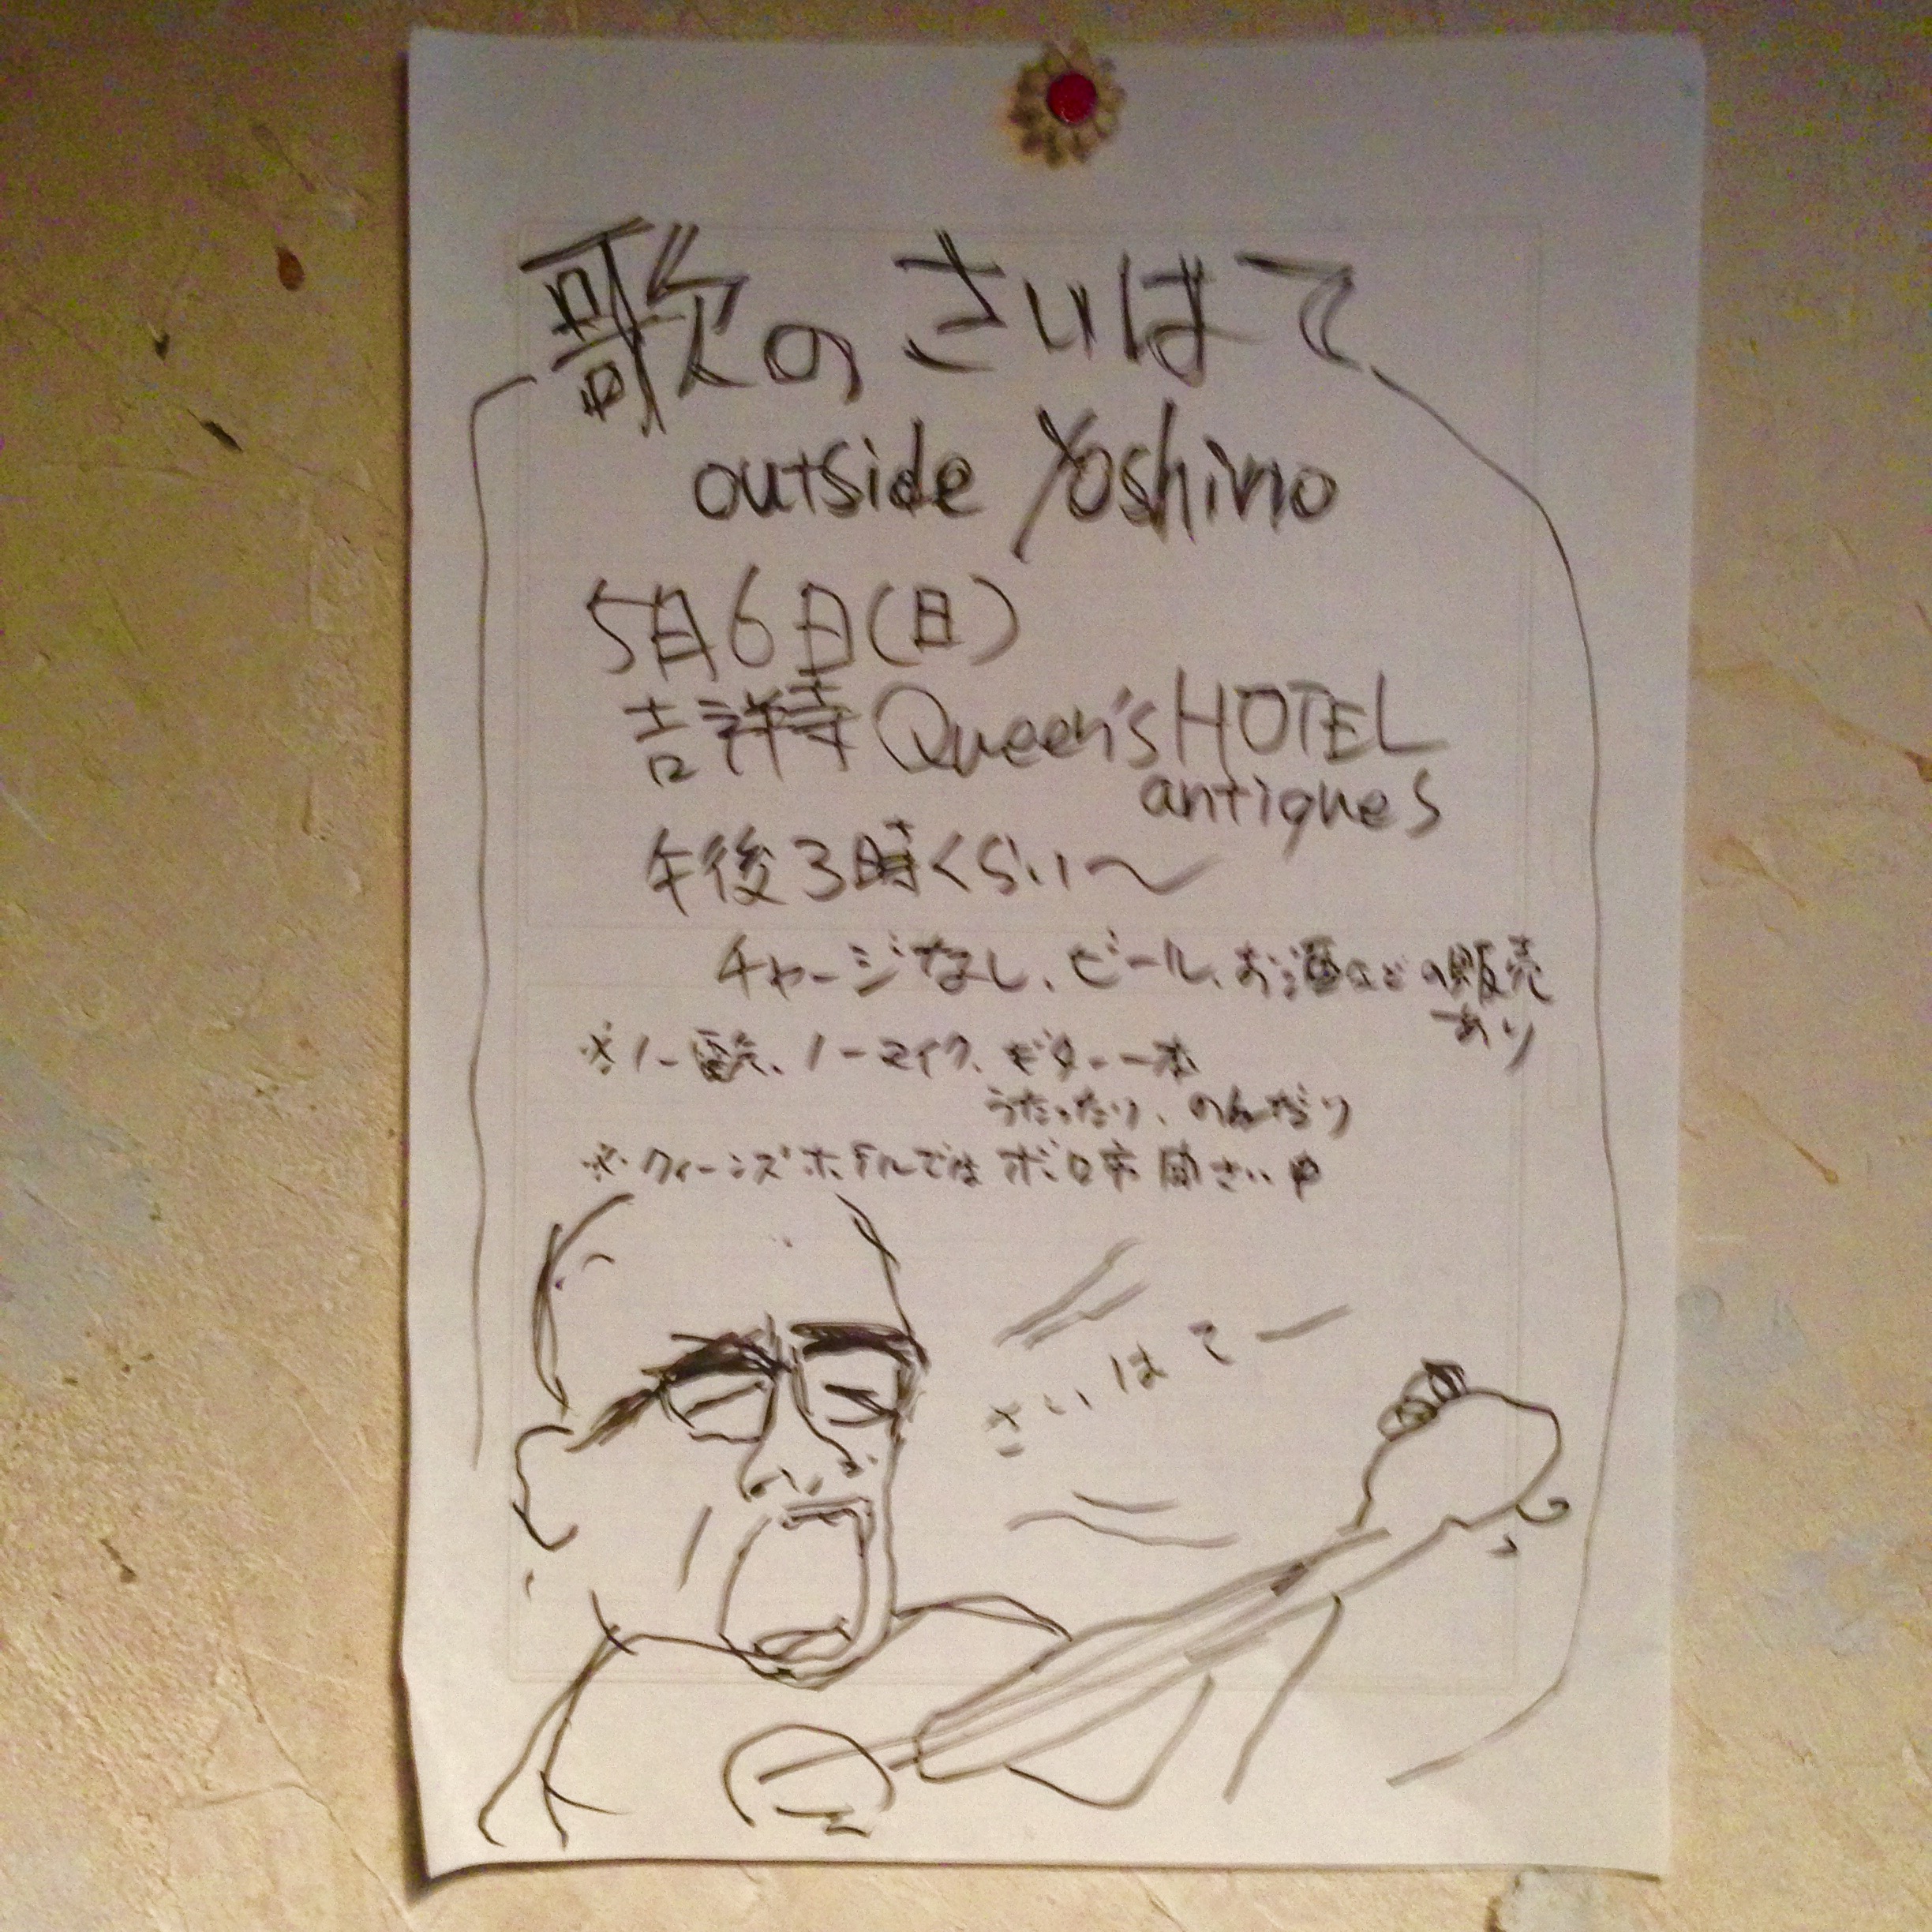 歌のさいはて
outside Yoshino
5月6日(日)
吉祥寺 Queen's HOTEL
antiques
午後3時くらい〜
チャージなし、ビール、お酒などの販売
あり
※ノー電気、ノーマイク、ギター一本
うたったり、のんだり
※クィーンズホテルではボロ市開さい中
さいはてー